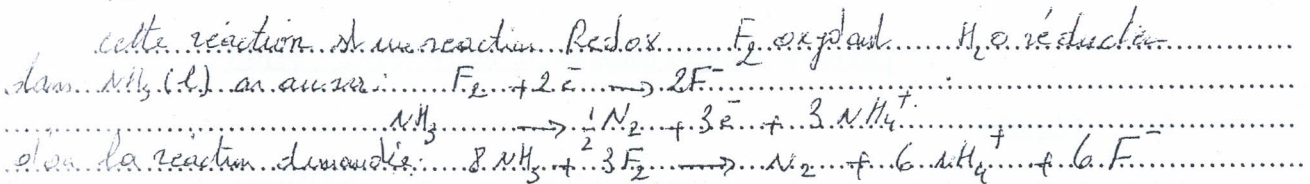 cette réaction st une reaction Redox F₂ oxydant H₂O réducteur
dans NH₃ (l) on aura: F₂ + 2 ē → 2F⁻
NH₃ → 1/2 N₂ + 3 ē + 3 NH₄⁺
d'ou la reaction demandée: 8 NH₃ + 3F₂ → N₂ + 6 NH₄⁺ + 6 F⁻